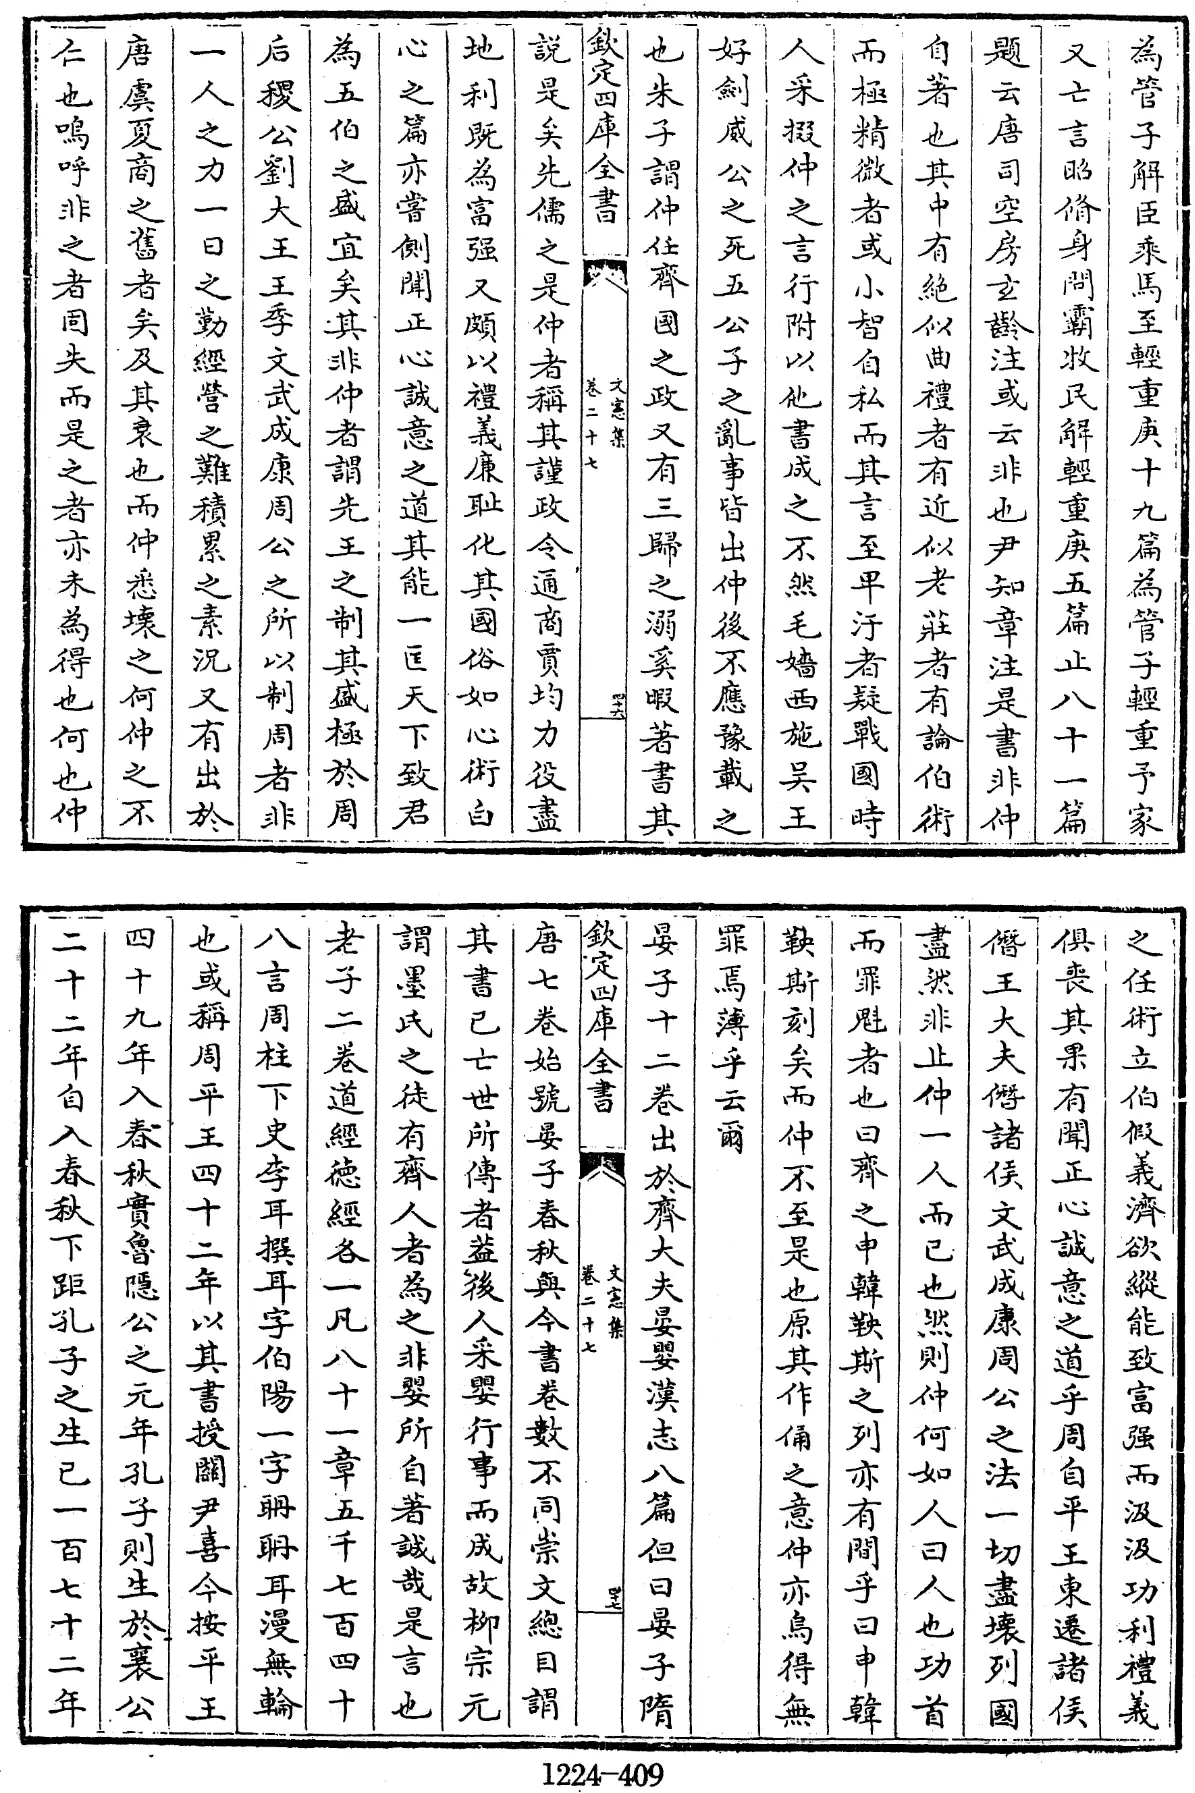 為管子解臣乘馬至輕重庚十九篇為管子輕重予家
又亡言昭脩身問霸牧民解輕重庚五篇止八十一篇
題云唐司空房玄齡注或云非也尹知章注是書非仲
自著也其中有絶似曲禮者有近似老莊者有論伯術
而極精微者或小智自私而其言至卑汙者疑戰國時
人采掇仲之言行附以他書成之不然毛嬙西施吳王
好劍威公之死五公子之亂事皆出仲後不應豫載之
也朱子謂仲任齊國之政又有三歸之溺奚暇著書其
欽定四庫全書
文憲集
卷二十七
四十六
說是矣先儒之是仲者稱其謹政令通商賈均力役盡
地利既為富强又頗以禮義廉耻化其國俗如心術白
心之篇亦嘗側聞正心誠意之道其能一匡天下致君
為五伯之盛宜矣其非仲者謂先王之制其盛極於周
后稷公劉大王王季文武成康周公之所以制周者非
一人之力一日之勤經營之難積累之素況又有出於
唐虞夏商之舊者矣及其衰也而仲悉壞之何仲之不
仁也嗚呼非之者固失而是之者亦未為得也何也仲
之任術立伯假義濟欲縱能致富强而汲汲功利禮義
俱喪其果有聞正心誠意之道乎周自平王東遷諸侯
僭王大夫僭諸侯文武成康周公之法一切盡壞列國
盡然非止仲一人而已也然則仲何如人曰人也功首
而罪魁者也曰齊之申韓鞅斯之列亦有間乎曰申韓
鞅斯刻矣而仲不至是也原其作俑之意仲亦烏得無
罪焉薄乎云爾
晏子十二卷出於齊大夫晏嬰漢志八篇但曰晏子隋
欽定四庫全書
文憲集
卷二十七
四十七
唐七卷始號晏子春秋與今書卷數不同崇文總目謂
其書已亡世所傳者蓋後人采嬰行事而成故柳宗元
謂墨氏之徒有齊人者為之非嬰所自著誠哉是言也
老子二卷道經德經各一凡八十一章五千七百四十
八言周柱下史李耳撰耳字伯陽一字聃聃耳漫無輪
也或稱周平王四十二年以其書授關尹喜今按平王
四十九年入春秋實魯隱公之元年孔子則生於襄公
二十二年自入春秋下距孔子之生已一百七十二年
1224-409